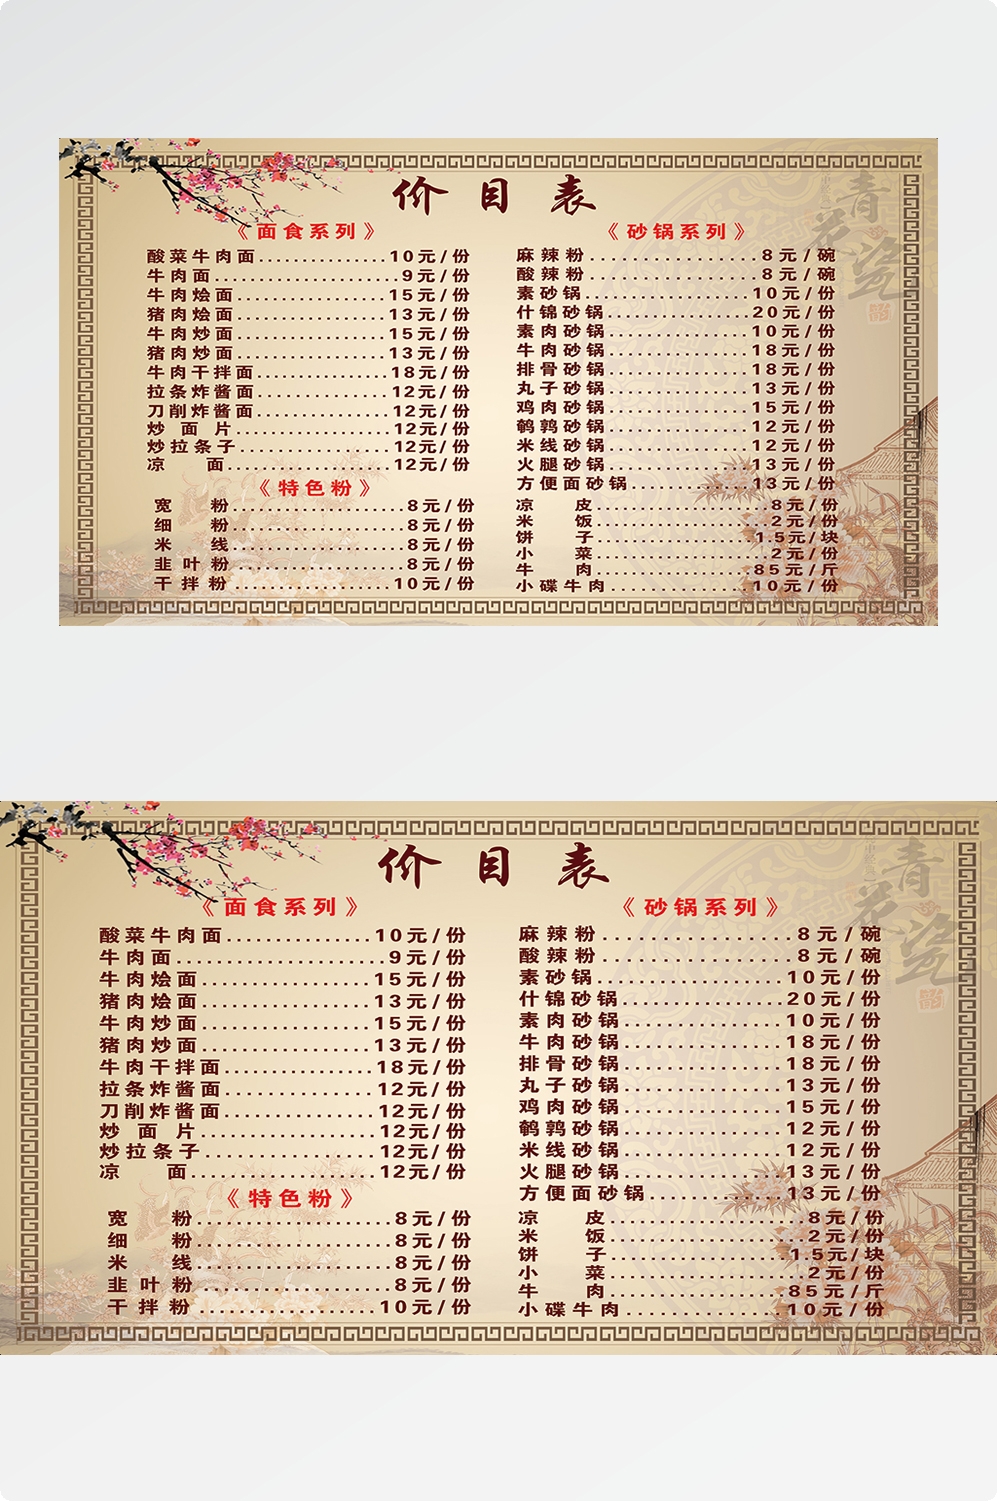 价目表
《面食系列》
酸菜牛肉面..............10元/份
牛肉面....................9元/份
牛肉烩面.................15元/份
猪肉烩面.................13元/份
牛肉炒面.................15元/份
猪肉炒面.................13元/份
牛肉干拌面...............18元/份
拉条炸酱面...............12元/份
刀削炸酱面...............12元/份
炒面片..................12元/份
炒拉条子.................12元/份
凉面...................12元/份
《特色粉》
宽粉....................8元/份
细粉....................8元/份
米线....................8元/份
韭叶粉...................8元/份
干拌粉..................10元/份
《砂锅系列》
麻辣粉.................8元/碗
酸辣粉.................8元/碗
素砂锅.................10元/份
什锦砂锅...............20元/份
素肉砂锅...............10元/份
牛肉砂锅...............18元/份
排骨砂锅...............18元/份
丸子砂锅...............13元/份
鸡肉砂锅...............15元/份
鹌鹑砂锅...............12元/份
米线砂锅...............12元/份
火腿砂锅...............13元/份
方便面砂锅.............13元/份
凉皮..................8元/份
米饭..................2元/份
饼子.................1.5元/块
小菜..................2元/份
牛肉.................85元/斤
小碟牛肉..............10元/份
青花瓷
价目表
《面食系列》
酸菜牛肉面..............10元/份
牛肉面....................9元/份
牛肉烩面.................15元/份
猪肉烩面.................13元/份
牛肉炒面.................15元/份
猪肉炒面.................13元/份
牛肉干拌面...............18元/份
拉条炸酱面...............12元/份
刀削炸酱面...............12元/份
炒面片..................12元/份
炒拉条子.................12元/份
凉面...................12元/份
《特色粉》
宽粉....................8元/份
细粉....................8元/份
米线....................8元/份
韭叶粉...................8元/份
干拌粉..................10元/份
《砂锅系列》
麻辣粉.................8元/碗
酸辣粉.................8元/碗
素砂锅.................10元/份
什锦砂锅...............20元/份
素肉砂锅...............10元/份
牛肉砂锅...............18元/份
排骨砂锅...............18元/份
丸子砂锅...............13元/份
鸡肉砂锅...............15元/份
鹌鹑砂锅...............12元/份
米线砂锅...............12元/份
火腿砂锅...............13元/份
方便面砂锅.............13元/份
凉皮..................8元/份
米饭..................2元/份
饼子.................1.5元/块
小菜..................2元/份
牛肉.................85元/斤
小碟牛肉..............10元/份
青花瓷